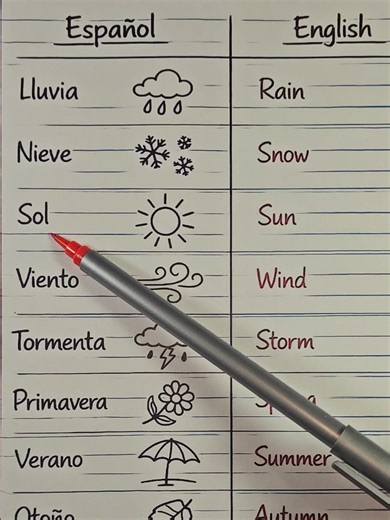 Español English
Lluvia Rain
Nieve Snow
Sol Sun
Viento Wind
Tormenta Storm
Primavera
Verano Summer
Otoño Autumn